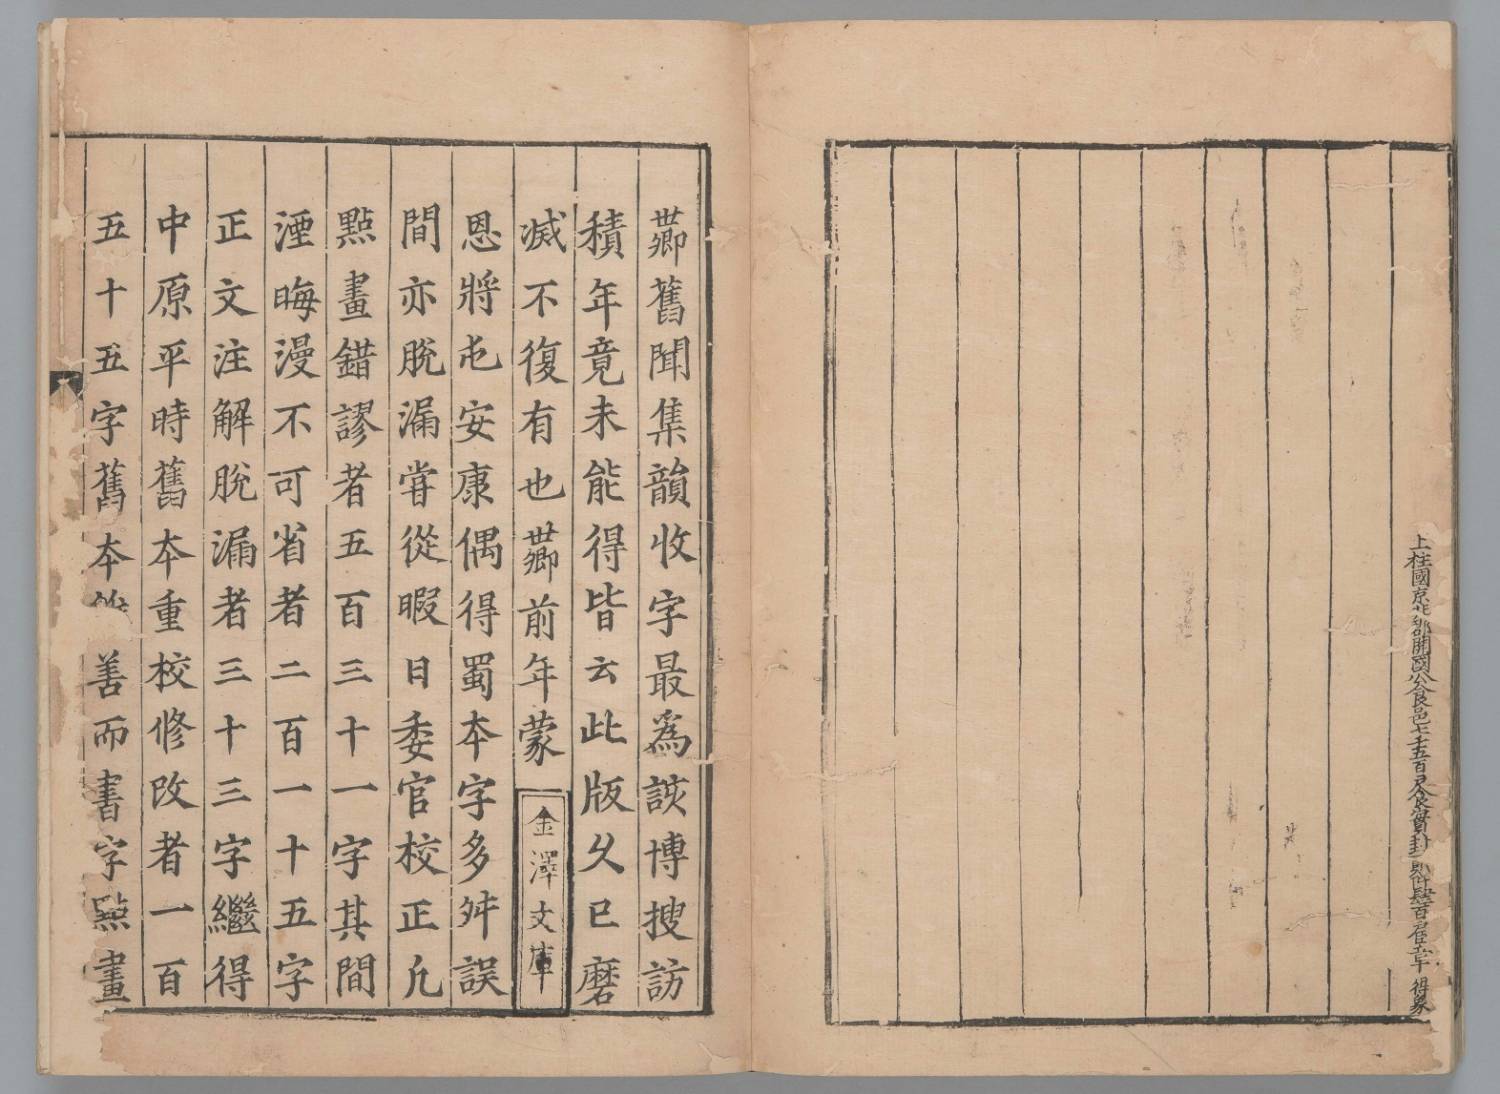 上柱國京兆郡開國公食邑七千五百戶食實封貳阡肆百戶臣章得象
世卿舊聞集韻收字最爲該博搜訪
積年竟未能得皆云此版久已磨
滅不復有也世卿前年蒙
恩將屯安康偶得蜀本字多舛誤
間亦脫漏嘗從暇日委官校正凡
點畫錯謬者五百三十一字其間
湮晦漫不可省者二百一十五字
正文注解脫漏者三十三字繼得
中原平時舊本重校修改者一百
五十五字舊本
善而書字點畫
金澤文庫